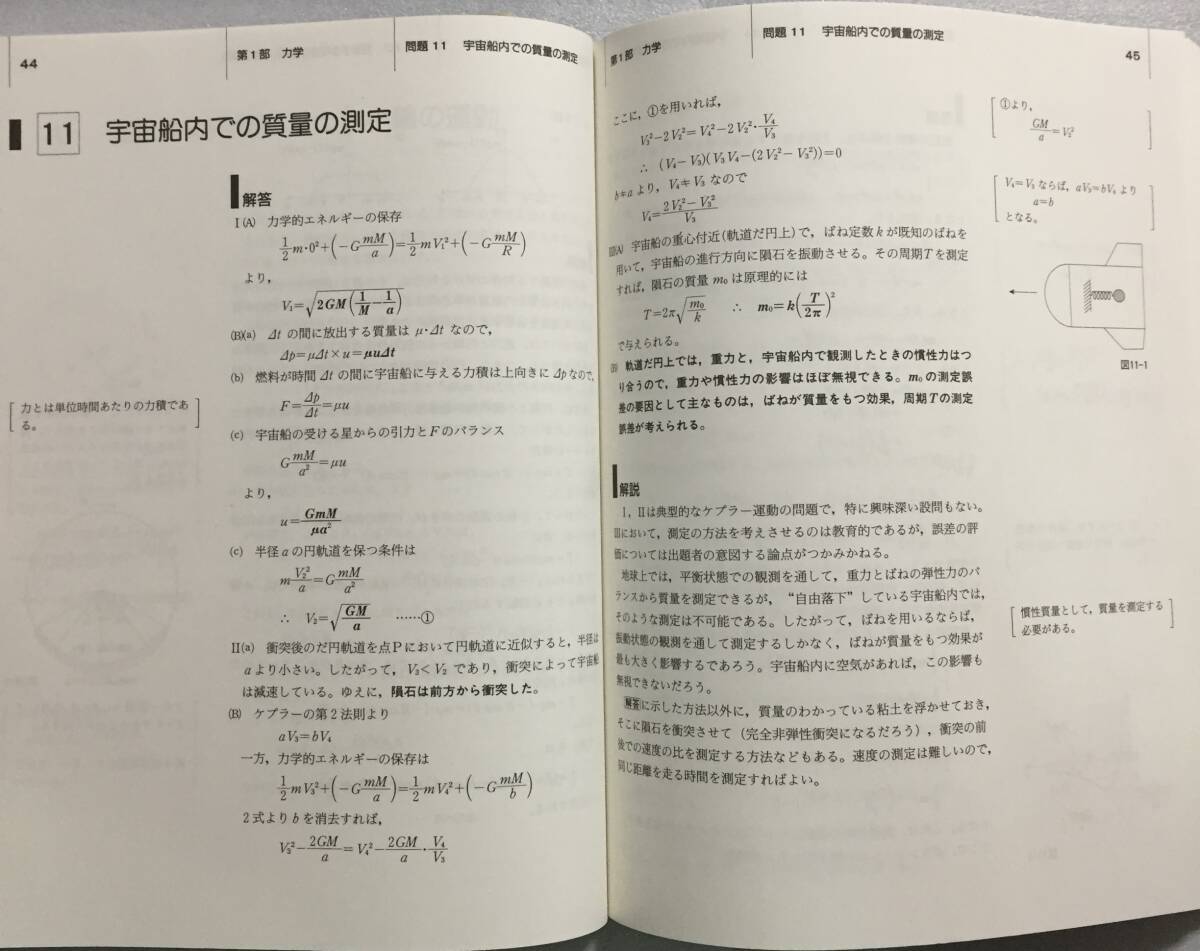 44
第1部 力学
問題 11 宇宙船内での質量の測定
11 宇宙船内での質量の測定
解答
I(A) 力学的エネルギーの保存
1/2 m・0²+(−G mM/a)=1/2 mV₁²+(−G mM/R)
より，
V₁=√(2GM(1/M−1/a))
(B)(a) Δt の間に放出する質量は μ・Δt なので，
Δp=μΔt×u=μuΔt
(b) 燃料が時間 Δt の間に宇宙船に与える力積は上向きに Δp なので，
F=Δp/Δt=μu
力とは単位時間あたりの力積である。
(c) 宇宙船の受ける星からの引力と F のバランス
G mM/a²=μu
より，
u=GmM/μa²
(c) 半径 a の円軌道を保つ条件は
m V₂²/a=G mM/a²
∴ V₂=√(GM/a) ……①
II(a) 衝突後のだ円軌道を点Pにおいて円軌道に近似すると，半径は
a より小さい。したがって，V₃<V₂ であり，衝突によって宇宙船
は減速している。ゆえに，隕石は前方から衝突した。
(B) ケプラーの第2法則より
aV₃=bV₄
一方，力学的エネルギーの保存は
1/2 mV₃²+(−G mM/a)=1/2 mV₄²+(−G mM/b)
2式より b を消去すれば，
V₃²−2GM/a=V₄²−2GM/a・V₄/V₃
第1部 力学
問題 11 宇宙船内での質量の測定
45
ここに，①を用いれば，
V₃²−2V₂²=V₄²−2V₂²・V₄/V₃
∴ (V₄−V₃)(V₃V₄−(2V₂²−V₃²))=0
b≠a より，V₄≠V₃ なので
V₄=(2V₂²−V₃²)/V₃
①より，
GM/a=V₂²
V₄=V₃ ならば，aV₃=bV₄ より
a=b
となる。
III(A) 宇宙船の重心付近(軌道だ円上)で，ばね定数 k が既知のばねを
用いて，宇宙船の進行方向に隕石を振動させる。その周期 T を測定
すれば，隕石の質量 m₀ は原理的には
T=2π√(m₀/k) ∴ m₀=k(T/2π)²
で与えられる。
(B) 軌道だ円上では，重力と，宇宙船内で観測したときの慣性力はつ
り合うので，重力や慣性力の影響はほぼ無視できる。m₀ の測定誤
差の要因として主なものは，ばねが質量をもつ効果，周期 T の測定
誤差が考えられる。
図11-1
解説
I，IIは典型的なケプラー運動の問題で，特に興味深い設問もない。
IIIにおいて，測定の方法を考えさせるのは教育的であるが，誤差の評
価については出題者の意図する論点がつかみかねる。
地球上では，平衡状態での観測を通して，重力とばねの弾性力のバ
ランスから質量を測定できるが，“自由落下”している宇宙船内では，
そのような測定は不可能である。したがって，ばねを用いるならば，
振動状態の観測を通して測定するしかなく，ばねが質量をもつ効果が
最も大きく影響するであろう。宇宙船内に空気があれば，この影響も
無視できないだろう。
慣性質量として，質量を測定する
必要がある。
解答に示した方法以外に，質量のわかっている粘土を浮かせておき，
そこに隕石を衝突させて（完全非弾性衝突になるだろう），衝突の前
後での速度の比を測定する方法などもある。速度の測定は難しいので，
同じ距離を走る時間を測定すればよい。